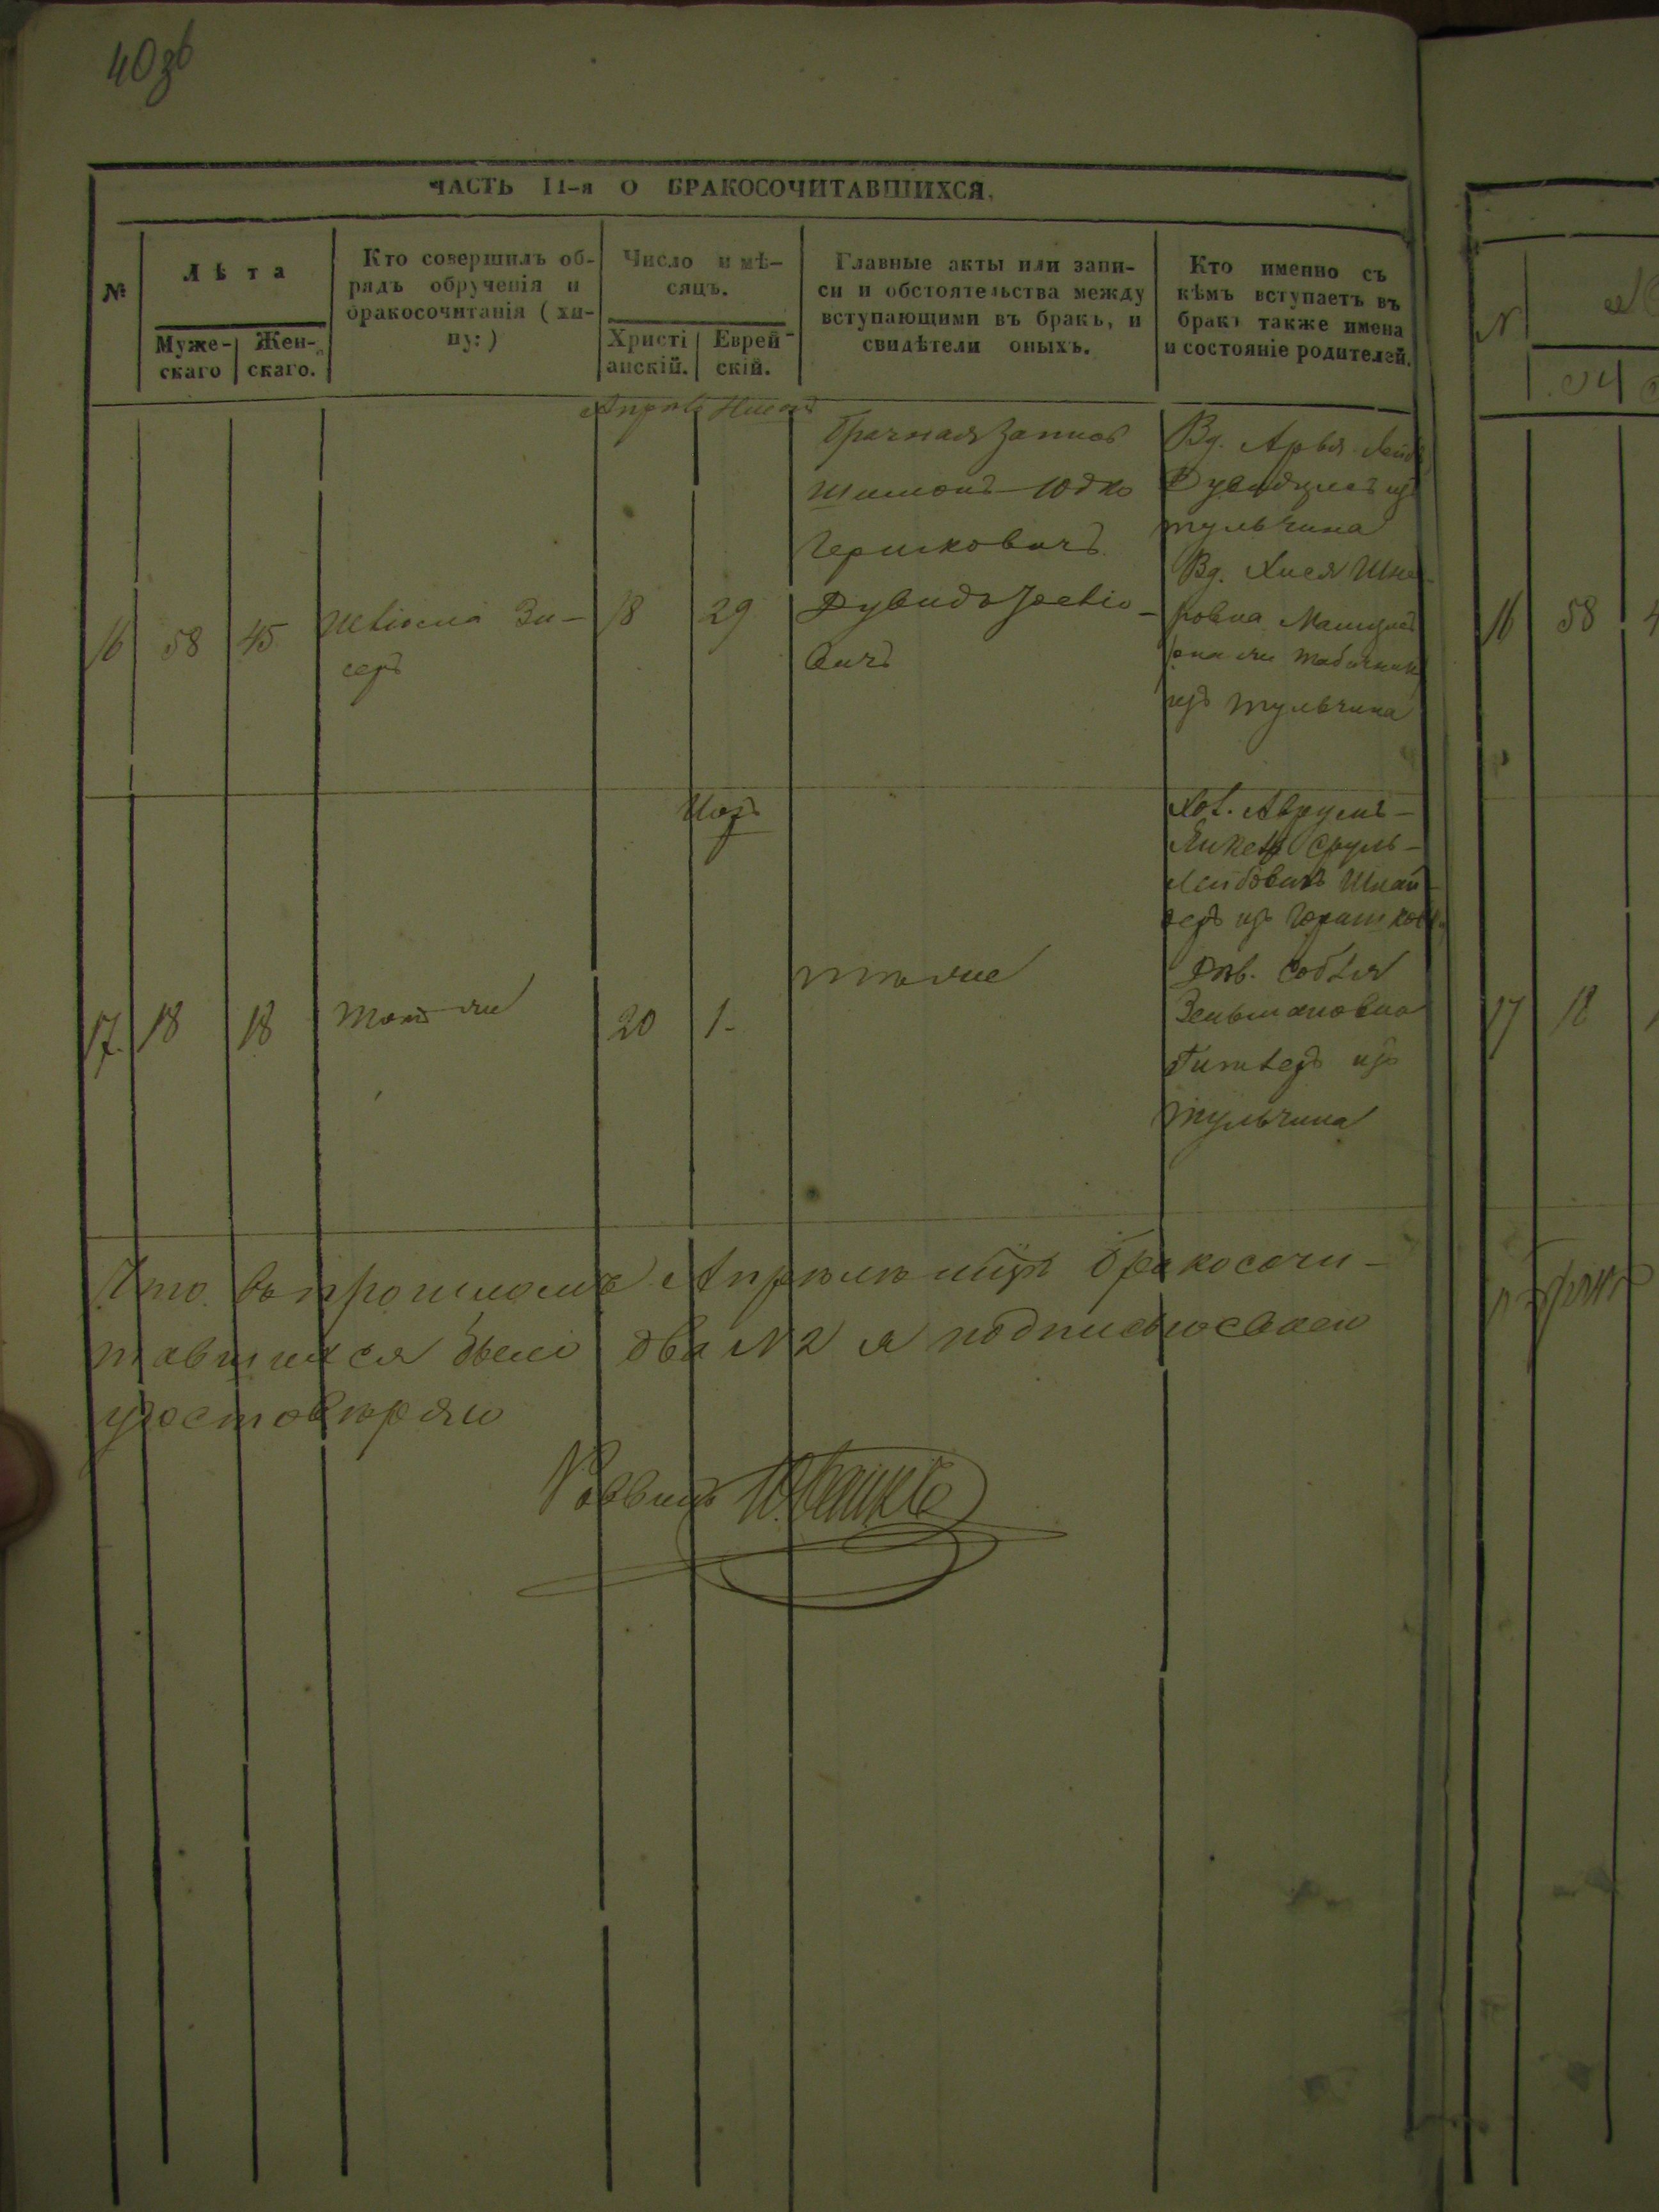 40 зв
ЧАСТЬ II-я О БРАКОСОЧИТАВШИХСЯ.
№
Лѣта
Муже-
скаго
Жен-
скаго.
Кто совершилъ об-
рядъ обрученія и
бракосочитанія (хи-
пу:)
Число и мѣ-
сяцъ.
Христі
анскій.
Еврей-
скій.
Главные акты или запи-
си и обстоятельства между
вступающими въ бракъ, и
свидѣтели оныхъ.
Кто именно съ
кѣмъ вступаетъ въ
бракъ также имена
и состояніе родителей.
16
58
45
Зи-
серъ
Апрель
18
Нисонъ
29
Брачная запись
Шимонъ-Юдко
Гершковичъ
Дувидъ
вичъ
Вд. Арья Лейбъ
изъ
Тульчина
Вд. Хися Шне-
ровна
она же Табачникъ
изъ Тульчина
17.
18
18
Тотъ же
20
Иоръ
1-
тѣ же
Хол. Аврумъ-
Сруль-
Лейбовичъ Шнай-
деръ изъ
Дѣв. Собля
Зельмановна
изъ
Тульчина
Что въ прошломъ Апрѣлѣ мцѣ бракосочи-
тавшихся было два №2 я подписью своею
удостовѣряю
Раввинъ
№
16
58
17
18